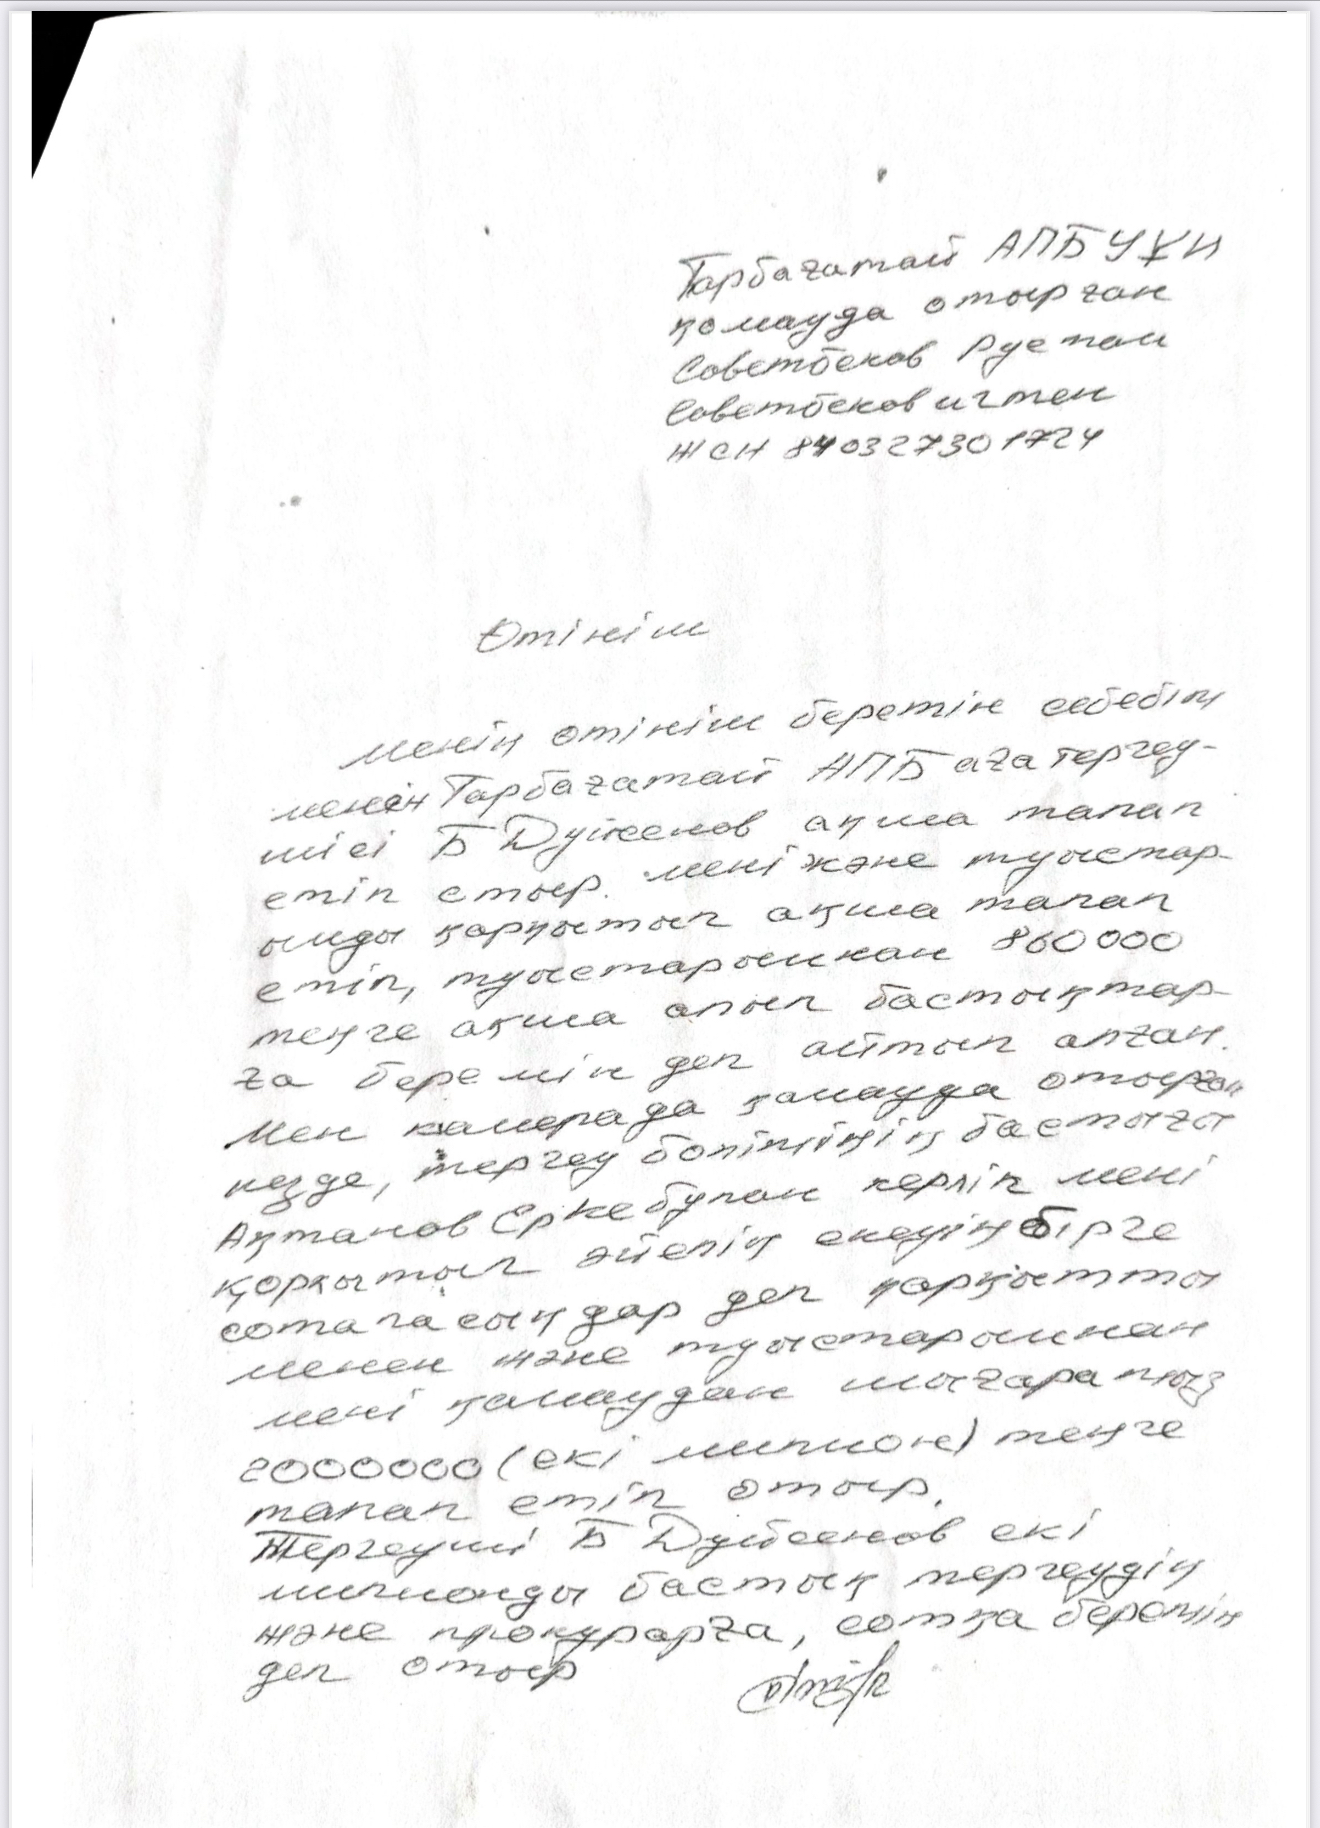 Тарбағатай АПБ УҰИ
қамауда отырған
Советбеков Рустам
Советбековичтен
ЖСН 840327301724
Өтініш
менің өтініш беретін себебім
менен Тарбағатай АПБ аға тергеу-
шісі Б Дүйсенов ақша талап
етіп отыр. мені және туыстар-
ымды қорқытып ақша талап
етіп, туыстарымнан 860000
теңге ақша алып бастықтар-
ға беремін деп айтып алған.
Мен камерада қамауда отырған
кезде, тергеу бөлімінің бастығы
Ақтанов Еркебұлан келіп мені
қорқытып әйелің екеуің бірге
сотталасыңдар деп қорқытты
менен және туыстарымнан
мені қамаудан шығарамыз
2000000 (екі милион) теңге
талап етіп отыр.
Тергеуші Б Дуйсенов екі
милионды бастық тергеудің
және прокурорға, сотқа беремін
деп отыр